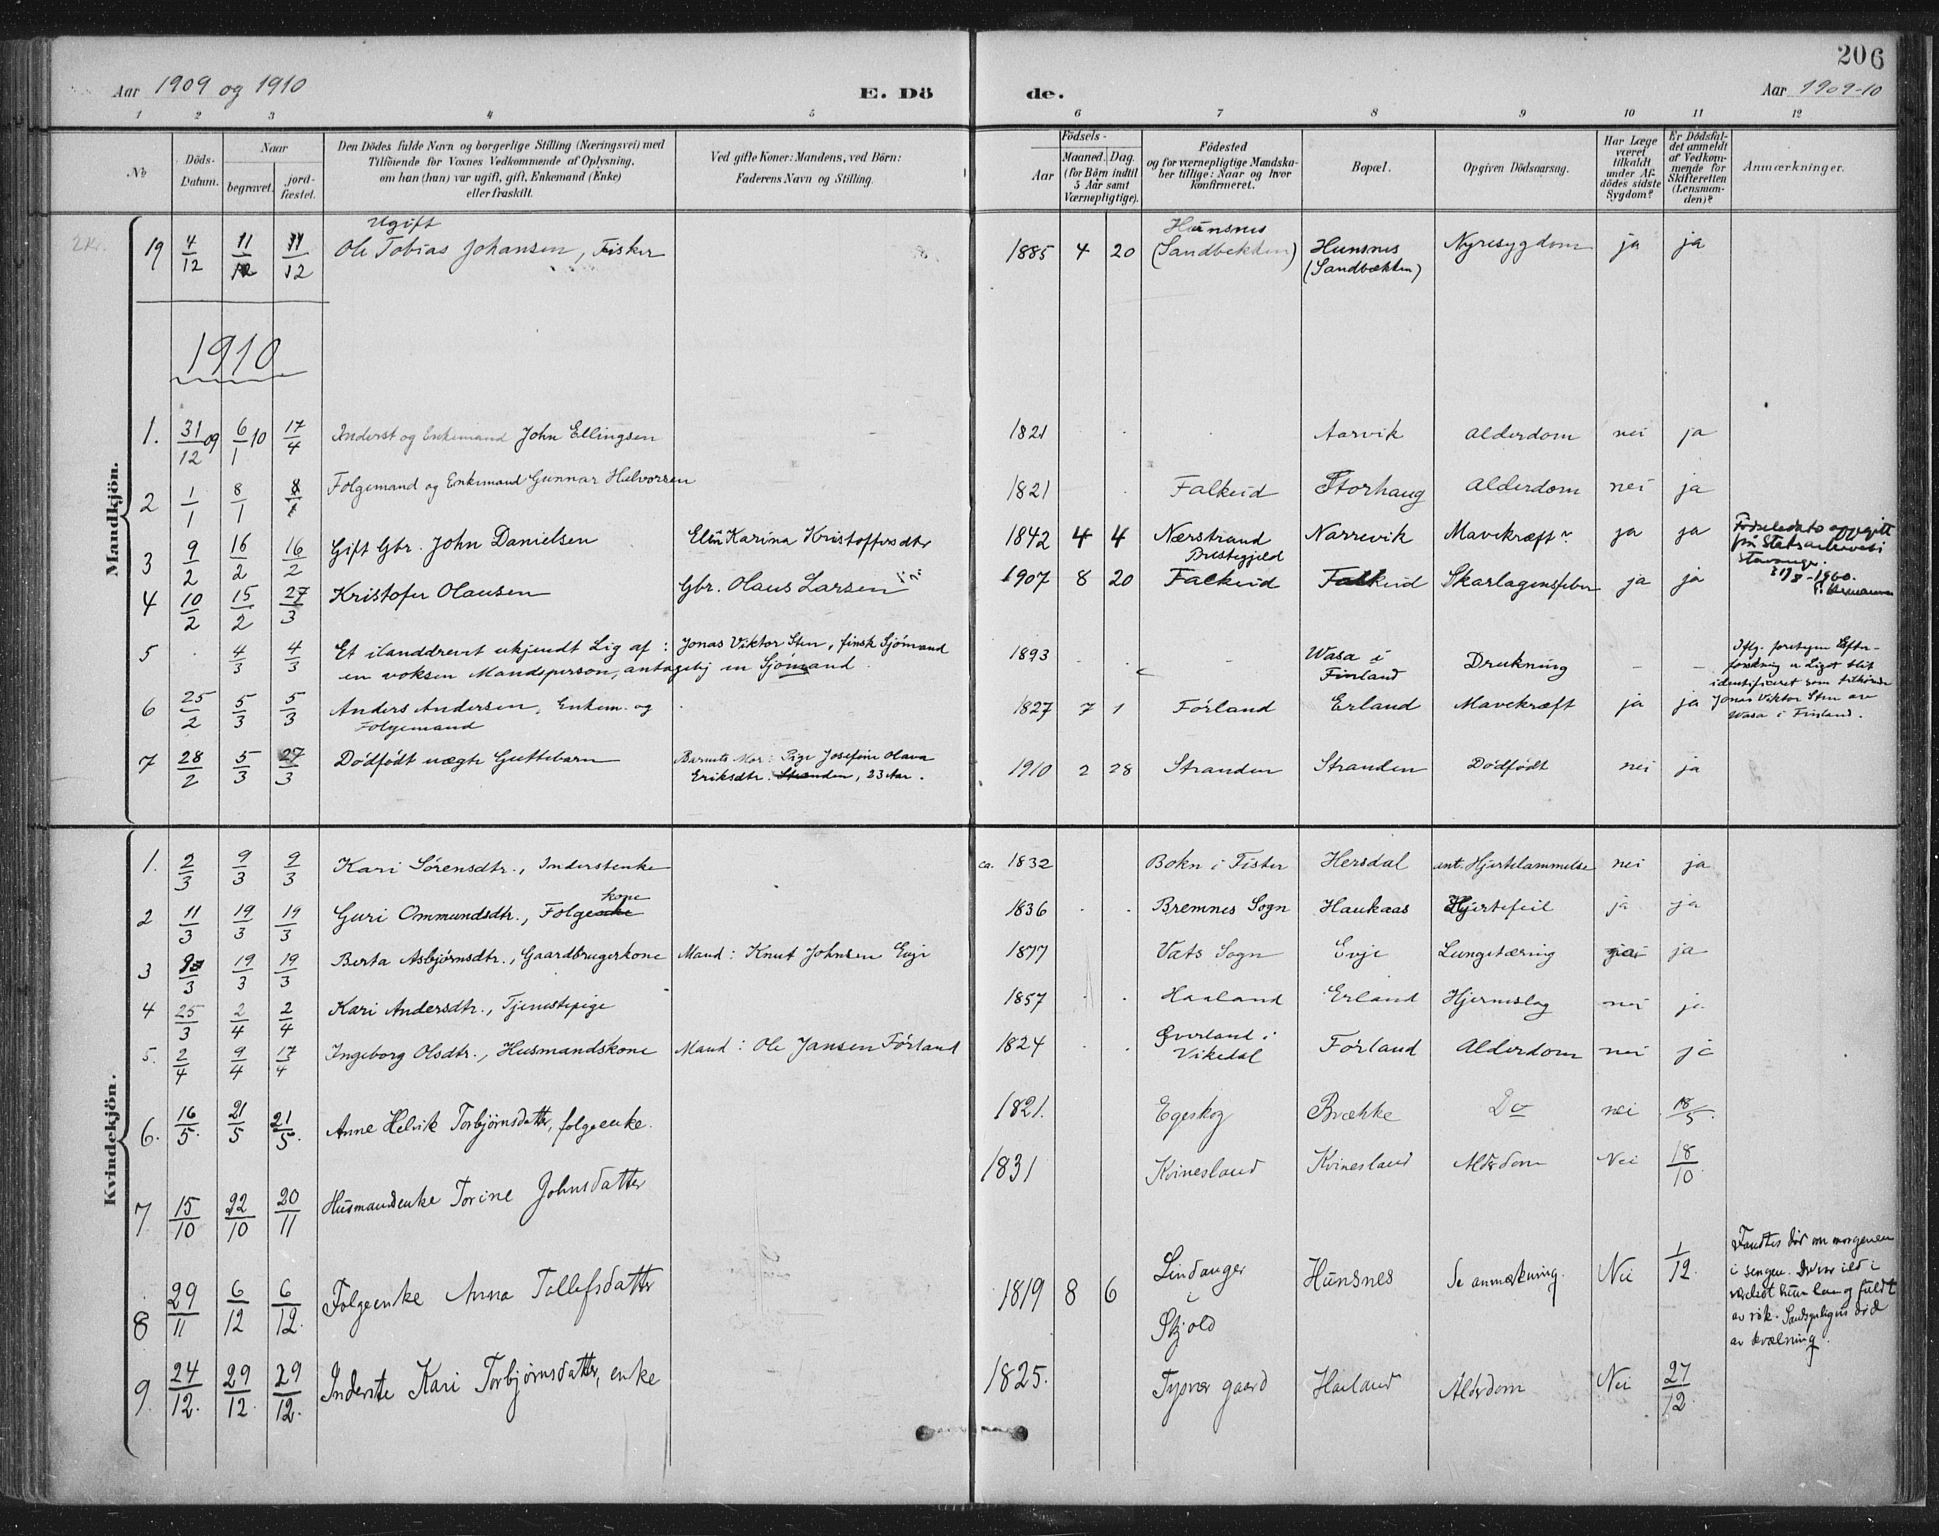 206
Aar 1909 og 1910 E. Dö de. Aar 1909-10
1 2 3 4 5 6 7 8 9 10 11 12
No
Döds-Datum.
Naar
begravet. jord-fæstet.
Den Dödes fulde Navn og borgerlige Stilling (Næringsvei) med
Tilföiende for Voxnes Vedkommende af Oplysning,
om han (hun) var ugift, gift, Enkemand (Enke)
eller fraskilt.
Ved gifte Koner: Mandens, ved Börn:
Faderens Navn og Stilling.
Födsels-
Aar Maaned. Dag.
(for Börn indtil
5 Aar samt
Værnepligtige).
Födested
og for værnepligtige Mandska-
ber tillige: Naar og hvor
konfirmeret.
Bopæl.
Opgiven Dödsaarsag.
Har Læge
været
tilkaldt
under Af-
dödes sidste
Sygdom?
Er Dödsfal-
det anmeldt
af Vedkom-
mende for
Skifteretten
(Lensman-
den)?
Anmærkninger.
Mandkjön.
2 Kr. 19 4/12 11/12 11/12 Ugift
Ole Tobias Johansen, Fisker 1885 4 20 Hunsnes (Sandbekken) Hunsnes (Sandbækken) Nyresygdom ja ja
1910
1. 31/12 09 6/1 10 17/4 Inderst og Enkemand John Ellingsen 1821 . . Aarvik Alderdom nei ja
2 1/1 8/1 8/1 Folgemand og Enkemand Gunnar Halvorsen 1821 . Falkeid Storhaug Alderdom nei ja
3 9/2 16/2 16/2 Gift Gbr. John Danielsen Elen Karina Kristoffersdtr 1842 4 4 Nærstrand Prestegjeld Narrevik Mavekræft ja ja Fødselsdato oppgitt
fra Statsarkivet i
Stavanger
4 10/2 15/2 27/3 Kristofer Olausen Gbr. Olaus Larsen 1907 8 20 Falkeid Falkeid Skarlagensfeber ja ja
5 . 4/3 4/3 Et ilanddrevet ukjendt Lig af : Jonas Viktor Sten, finsk Sjömand
en voksen Mandsperson, antagelig en Sjömand. 1893 . . - Wasa i Finland Drukning - - Iflg. foretagen Efter-
forskning er Liget blit
identificeret som tilhørende
Jonas Viktor Sten av
Wasa i Finland.
6 25/2 5/3 5/3 Anders Andersen, Enkem. og
Folgemand . 1827 7 1 Førland Erland Mavekræft ja ja
7 28/2 5/3 27/3 Dödfödt uægte Guttebarn Barnets Mor: Pige Josefine Olava
Eriksdtr. Stranden, 23 Aar. 1910 2 28 Stranden Stranden Dödfödt nei ja
Kvindekjön.
1. 2/3 9/3 9/3 Kari Sørensdtr., Inderstenke ca. 1832 Bokn i Tister Hersdal ant. Hjertelammelse nei ja
2 11/3 19/3 19/3 Guri Ommundsdtr., Folgeenke kone 1836 . . Bremnes Sogn Haukaas Hjertefeil ja ja
3 9/3 19/3 19/3 Berta Asbjørnsdtr., Gaardbrugerkone Mand: Knut Johnsen Evje 1877 Vats Sogn Evje Lungetæring ja ja
4 25/3 2/4 2/4 Kari Andersdtr., Tjenestepige 1857 . . Haaland Erland Hjerneslag nei ja
5. 2/4 9/4 17/4 Ingeborg Olsdtr., Husmandskone Mand: Ole Jansen Førland 1824 . . Øverland i Vikedal Førland Alderdom nei ja
6. 16/5. 21/5 21/5. Anne Helvik Torbjørnsdatter, folgeenke. 1821. Egeskog Brække Do nei 18/5.
7 15/10 22/10 20/11 Husmandsenke Torine Johnsdatter 1831 Kvinesland Kvinesland Alderdom Nei 18/10
8 29/11 6/12 6/12. Folgeenke Anna Tollefsdatter 1819 8 6 Lindanger i Skjold Hunsnes Se anmerkning. Nei 1/12. Fandtes død om morgenen
i sengen. Der var ild i
værelset hun laa og fuldt
av røk. Sandsynligvis død
av kvælning.
9. 24/12. 29/12. 29/12. Inderste Kari Torbjørnsdatter, enke 1825. Tysvær gaard Haaland Alderdom Nei 27/12.